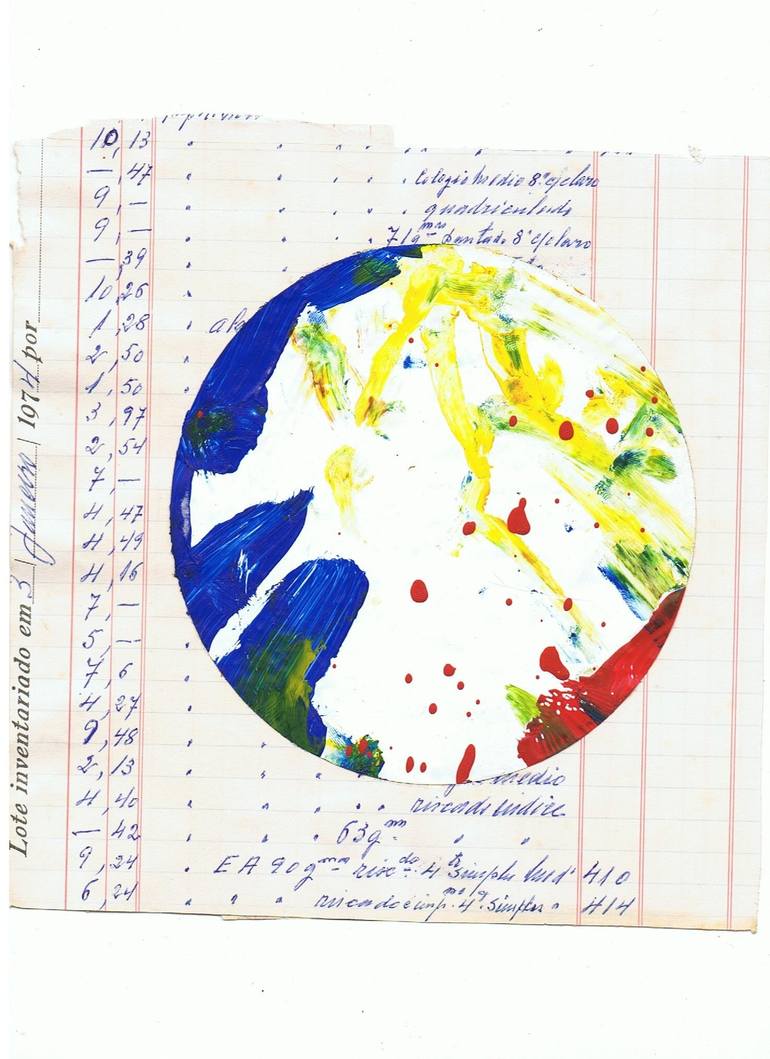 Lote inventariado em 3 | Janeiro | 1974 por
10,13
—,47 Colegio medio 8º c/claro
9,— quadriculado
9,— 71g mas Pautado 8º c/claro
—,39
10,26
1,28
2,50
1,50
3,97
2,54
7,—
4,47
4,49
4,16
7,—
5,—
7,6
4,27
9,48
2,13 medio
4,40 riscado indice
—,42 63g
9,24 EA 90g risc do 4º Simples 410
6,24 riscado e imp. 4º Simples 414